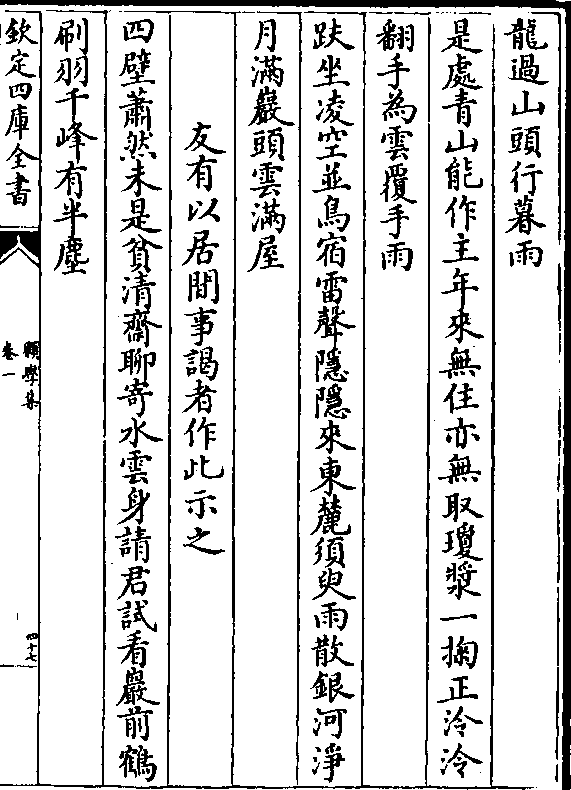 龍過山頭行暮雨
是處青山能作主年來無住亦無取瓊漿一掬正泠泠
翻手為雲覆手雨
趺坐凌空並鳥宿雷聲隱隱來東麓須臾雨散銀河淨
月滿巖頭雲滿屋
友有以居間事謁者作此示之
四壁蕭然未是貧清齋聊寄水雲身請君試看巖前鶴
刷羽千峰有半塵
欽定四庫全書
願學集
卷一
四十七